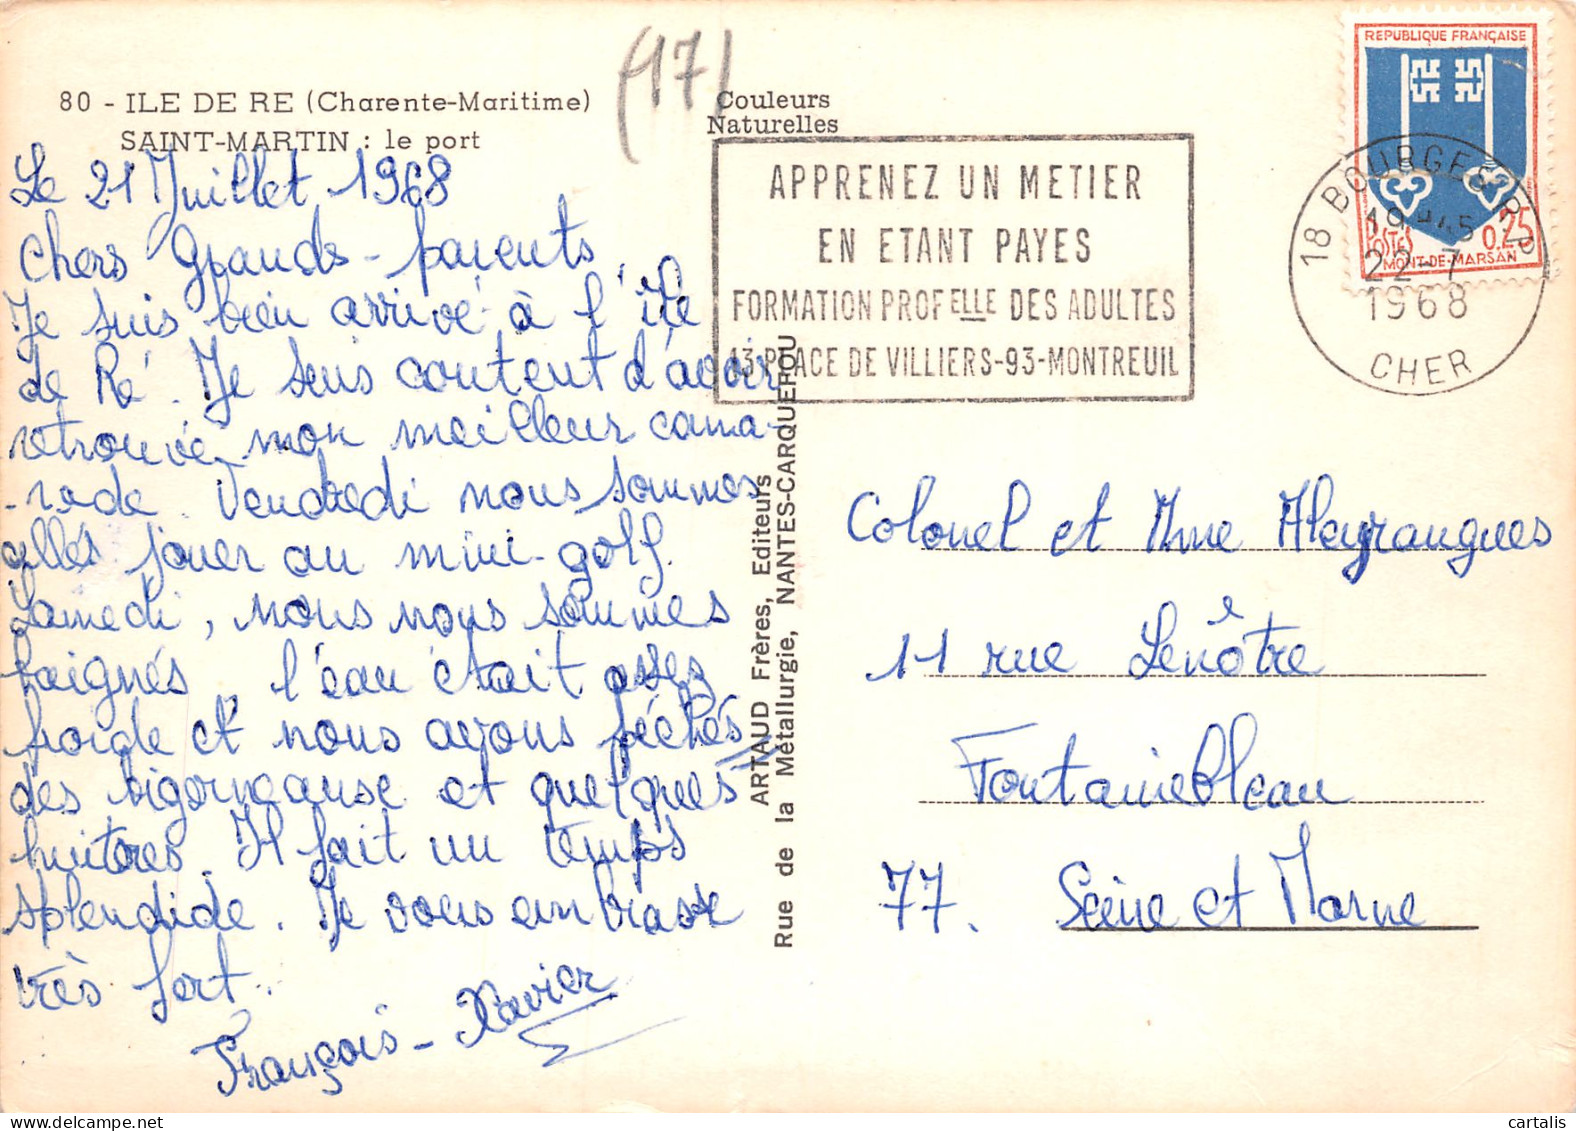 80 - ILE DE RE (Charente-Maritime)
SAINT-MARTIN : le port
(17)
Couleurs
Naturelles
Le 21 Juillet 1968
Chers Grands-parents,
Je suis bien arrivé à l'île
de Ré. Je suis content d'avoir
retrouvé mon meilleur cama-
-rade. Vendredi nous sommes
allés jouer au mini-golf.
Samedi, nous nous sommes
baignés, l'eau était assez
froide et nous avons péchés
des bigorneause et quelques
huitres. Il fait un temps
splendide. Je vous embrasse
très fort.
François-Xavier
ARTAUD Frères, Editeurs
Rue de la Métallurgie, NANTES-CARQUEFOU
APPRENEZ UN METIER
EN ETANT PAYES
FORMATION PROFELLE DES ADULTES
13 PLACE DE VILLIERS-93-MONTREUIL
REPUBLIQUE FRANÇAISE
POSTES 0,25
MONT-DE-MARSAN
18 BOURGES R.P.
19 H45
22-7
1968
CHER
Colonel et Mme Aleyrangues
11 rue Lenôtre
Fontainebleau
77. Seine et Marne
cartalis